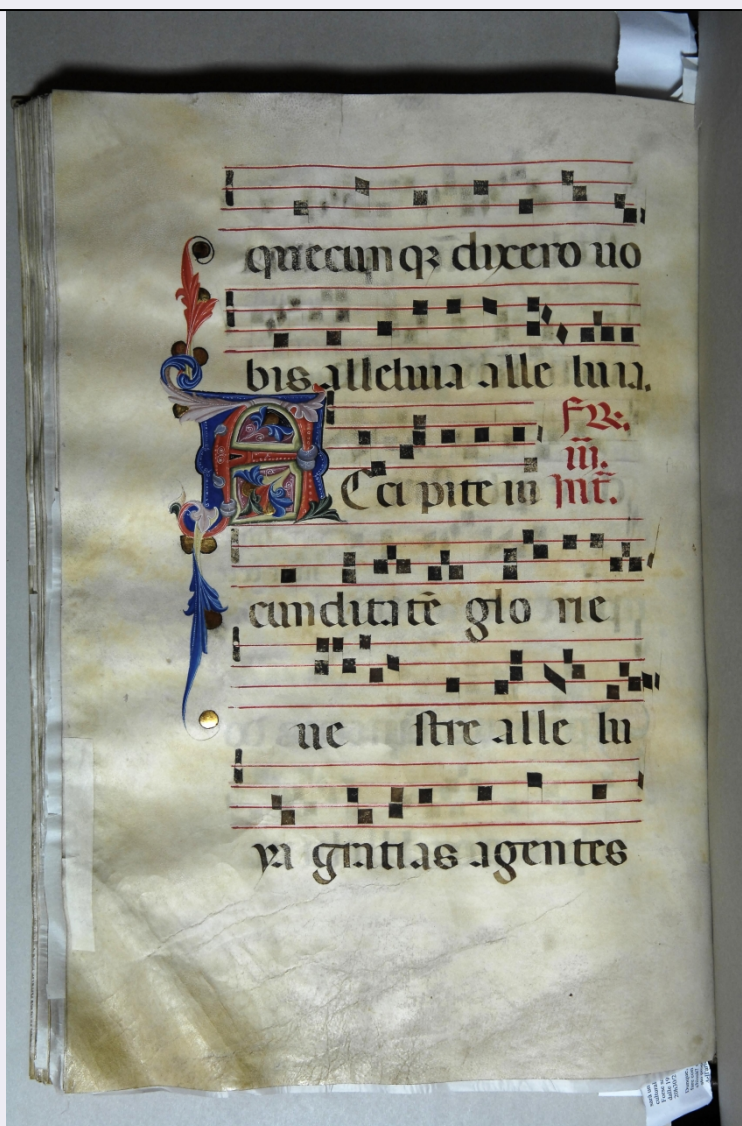 quecunqꝫ dixero uo
bis alleluia alle luia.
fr̃.
iii.
ACci pite iu int̃.
cundita tē glo rie
ue stre alle lu
ya gratias agentes